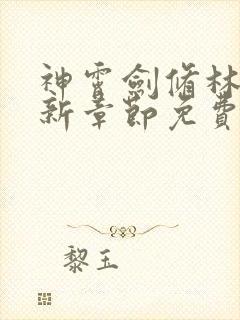 神霄劍脩林
新章節免費
黎玉